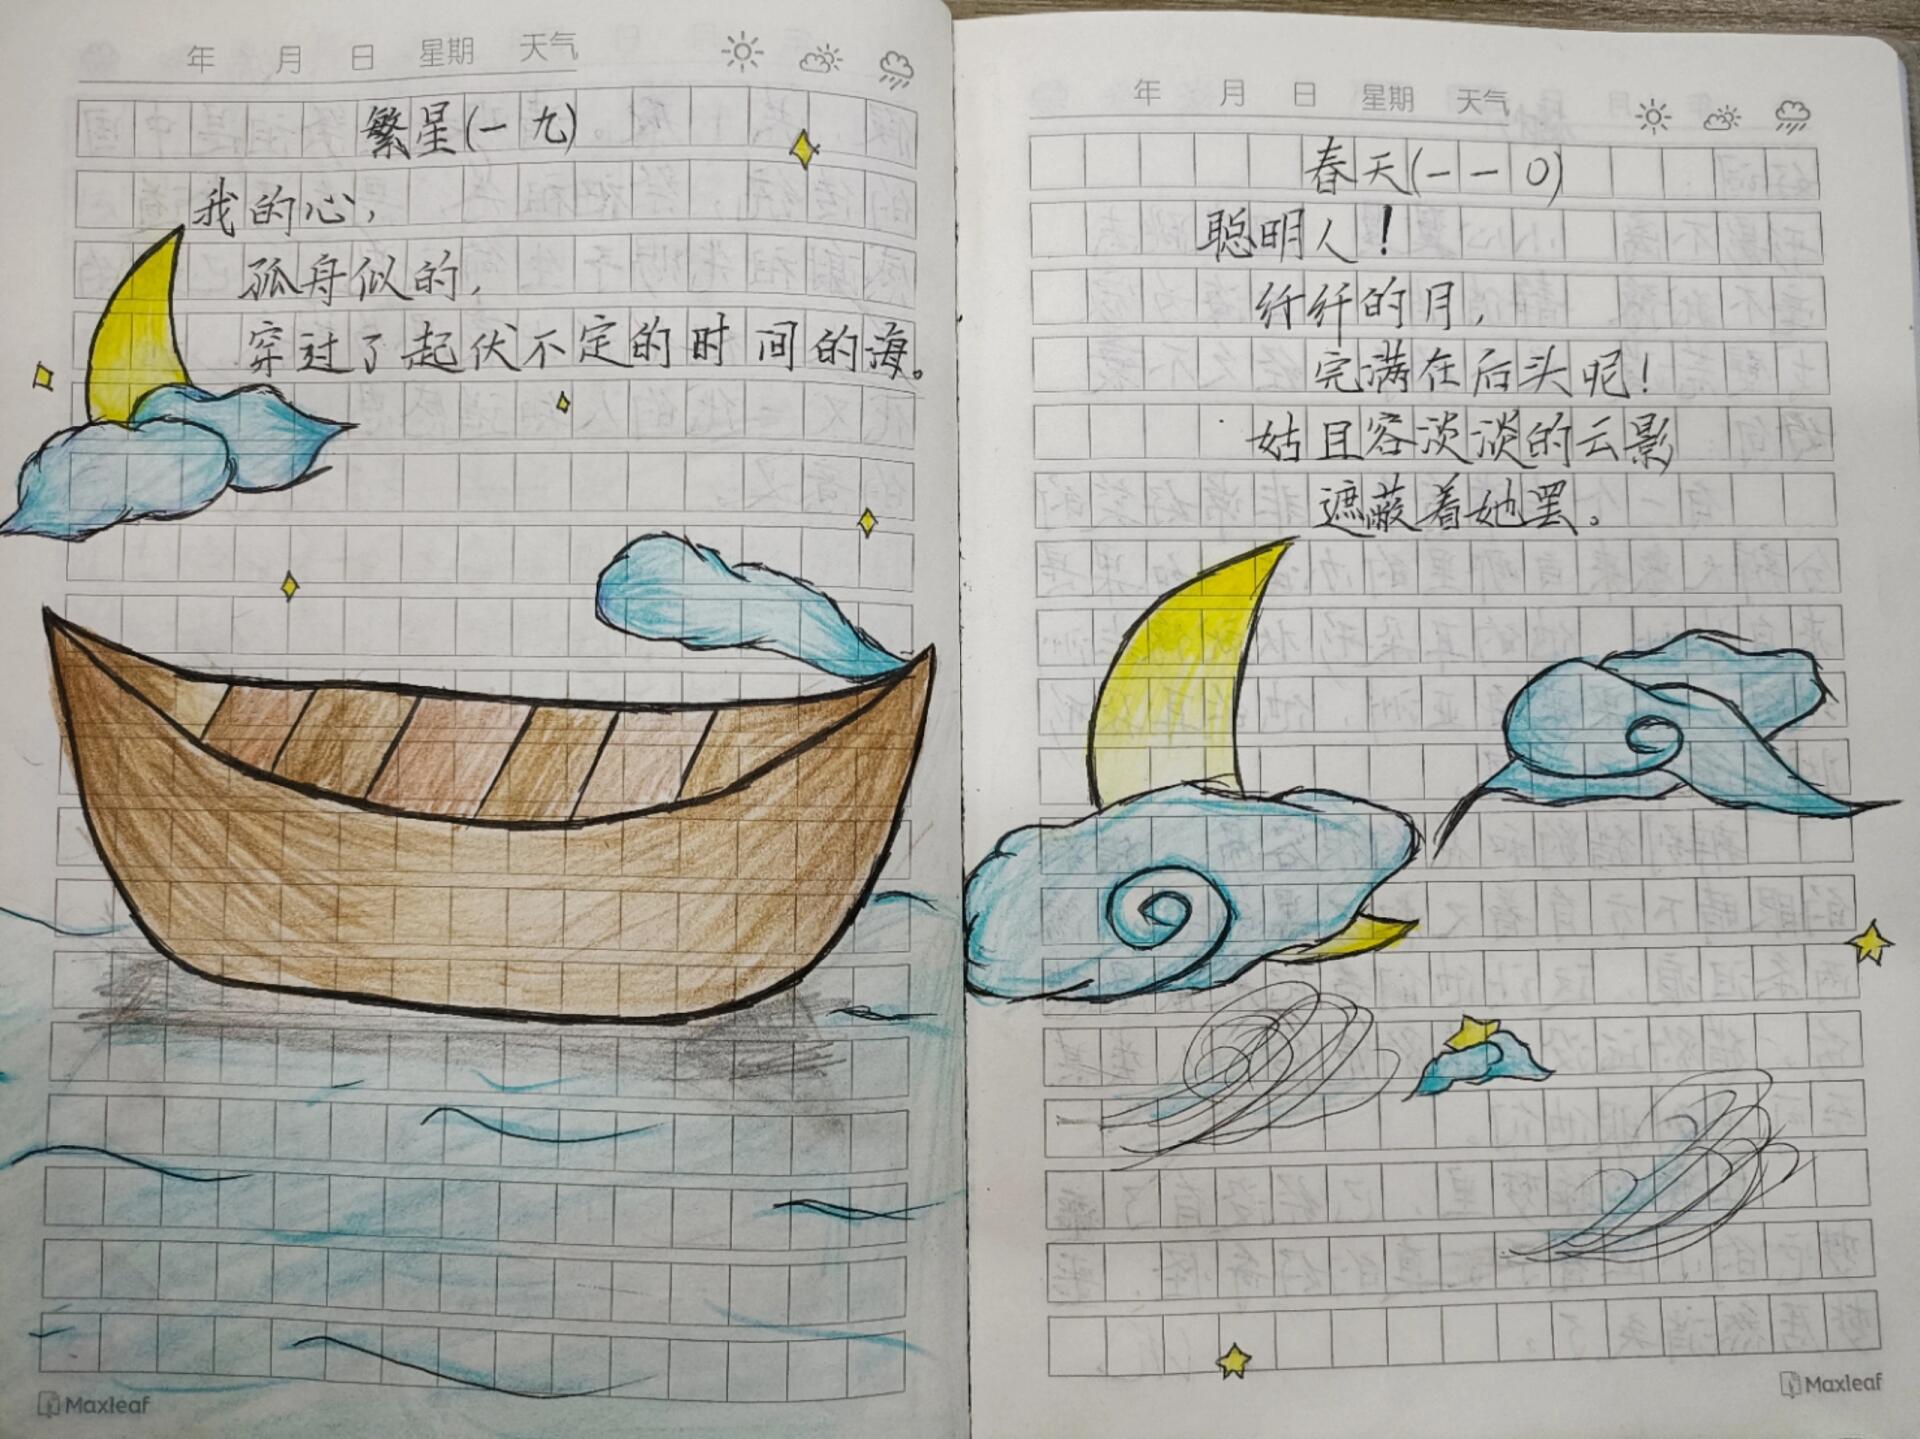 年 月 日 星期 天气
繁星(一九)
我的心，
孤舟似的，
穿过了起伏不定的时间的海。
Maxleaf
年 月 日 星期 天气
春天(一一0)
聪明人！
纤纤的月，
完满在后头呢！
姑且容淡淡的云影
遮蔽着她罢。
Maxleaf